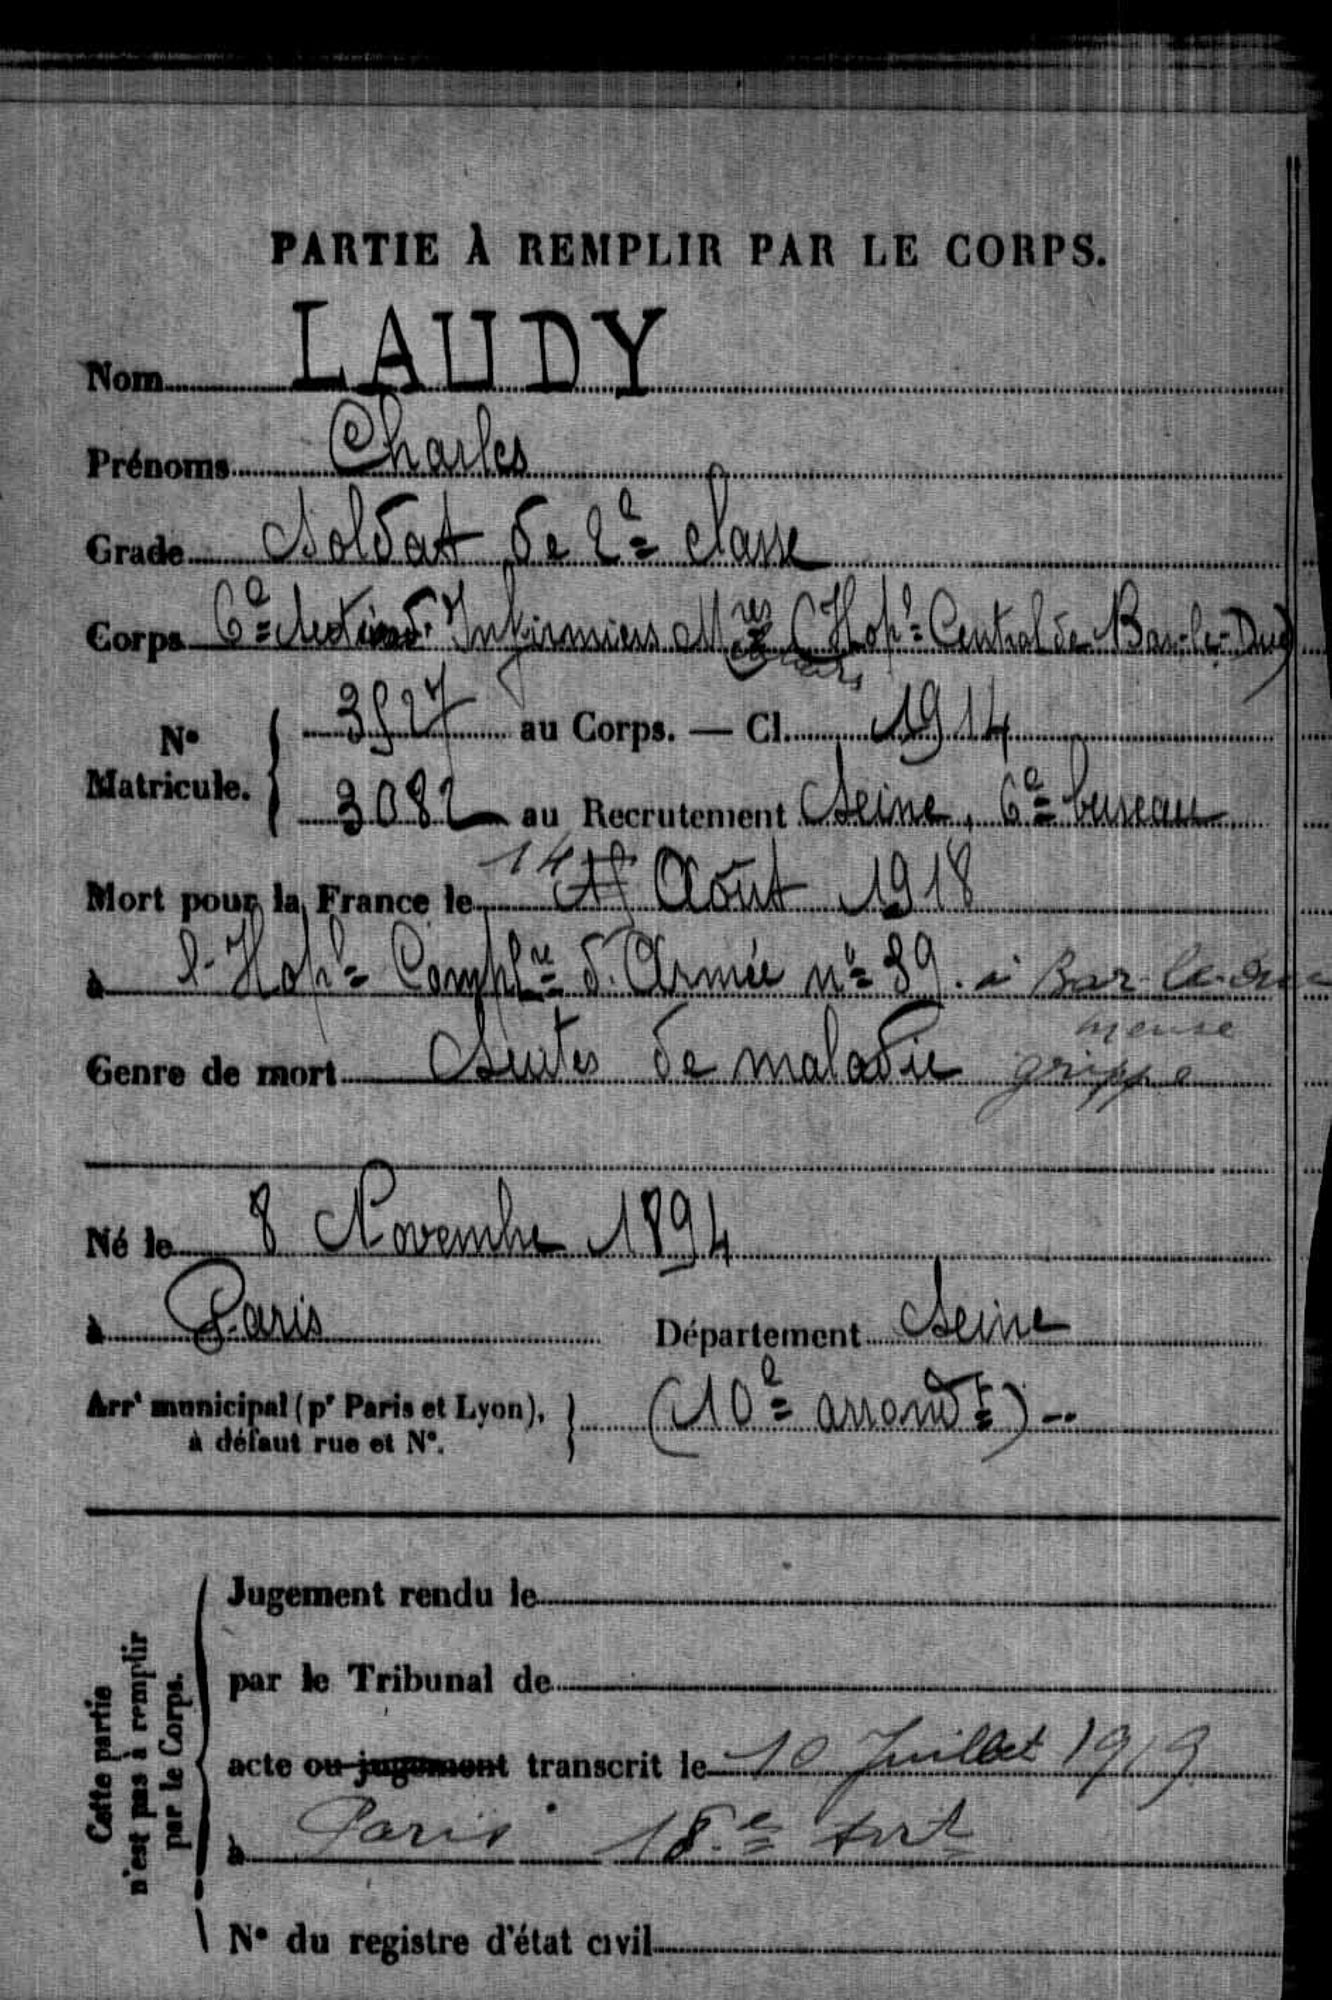 PARTIE À REMPLIR PAR LE CORPS.
Nom LAUDY
Prénoms Charles
Grade Soldat de 2e classe
Corps 6e Section d'Infirmiers Mres (Hopl Central de Bar-le-Duc)
N° Matricule. 3527 au Corps. — Cl. 1914
3082 au Recrutement Seine, 6e bureau
Mort pour la France le 14 Août 1918
à l'Hopl Complre d'Armée n° 39. à Bar-le-Duc
Meuse
Genre de mort Suites de maladie grippe
Né le 8 Novembre 1894
à Paris Département Seine
Arrt municipal (pr Paris et Lyon), à défaut rue et N°. (10e arrondt) --
Cette partie n'est pas à remplir par le Corps.
Jugement rendu le
par le Tribunal de
acte ou jugement transcrit le 10 Juillet 1919
à Paris 18.e Arrt
N° du registre d'état civil